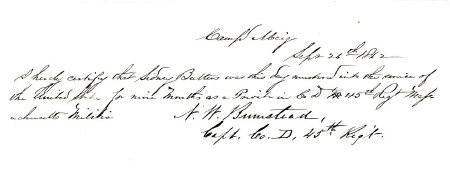 Camp Meig
Sept 26th 1862
I hereby certify that Sidney Butters was this day mustered into the service of
the United States for nine months as a Private in Co D the 45th Regt Mass
achusetts Militia N. W. Bumstead,
Capt. Co. D, 45th Regt.